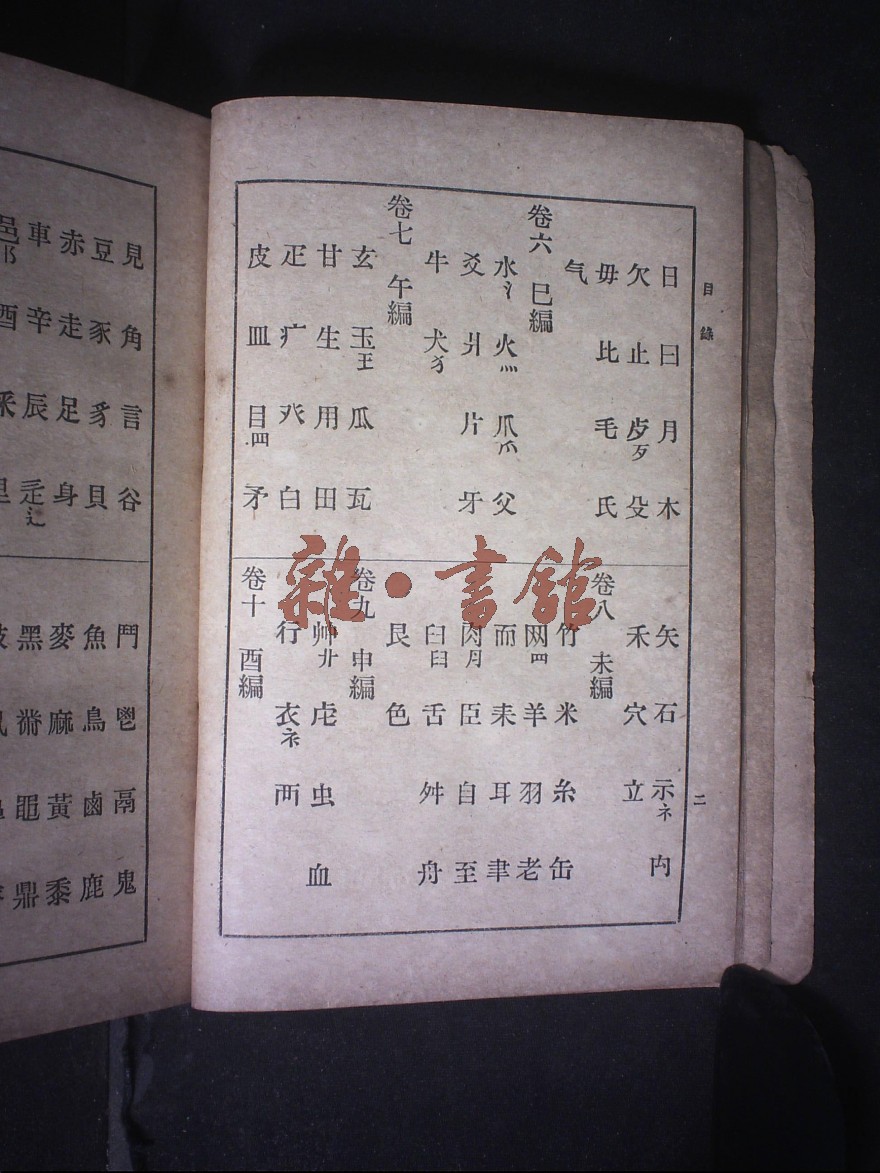 目錄
日曰月木
欠止歹歺殳
毋比毛氏
气
卷六 巳編
水氵火灬爪爫父
爻爿片牙
牛犬犭
卷七 午編
玄玉王瓜瓦
甘生用田
疋疒癶白
皮皿目罒矛
矢石示礻禸
禾穴立
卷八 未編
竹米糸缶
网罒羊羽老
而耒耳聿
肉月臣自至
臼𦥑舌舛舟
艮色
卷九 申編
艸卄虍虫血
行衣衤襾
卷十 酉編
二
見角言谷
豆豕豸貝
赤走足身
車辛辰辵辶
邑阝酉釆里
鬥鬯鬲鬼
魚鳥鹵鹿
麥麻黃黍
黑黹黽鼎
雜·書館